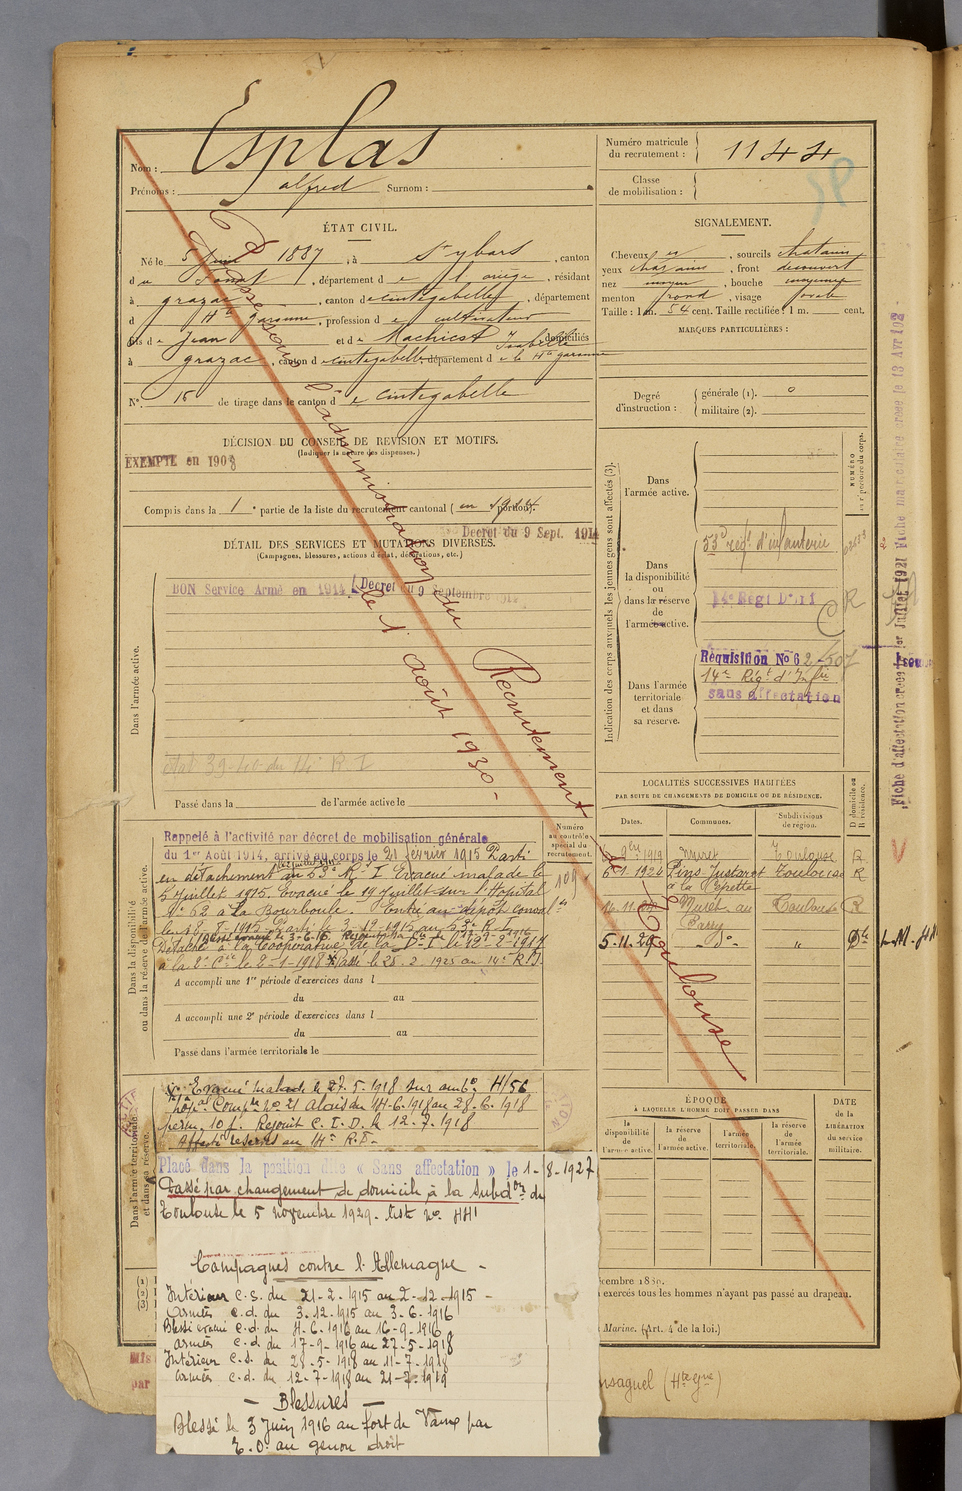 Nom : Esplas
Prénoms : alfred Surnom :
Numéro matricule du recrutement : 1144
Classe de mobilisation :
ÉTAT CIVIL.
Né le 5 Juin 1887, à St ybars, canton
du Fossat, département de l'ariège, résidant
à grazac, canton de cintegabelle, département
d Hte garonne, profession de cultivateur
fils de Jean et de Machicot Isabelle domiciliés
à grazac, canton de cintegabelle, département de la Hte garonne
N° 15 de tirage dans le canton de cintegabelle
SIGNALEMENT.
Cheveux et, sourcils chatains
yeux chatains, front découvert
nez moyen, bouche moyenne
menton rond, visage ovale
Taille : 1 m. 54 cent. Taille rectifiée : 1 m. cent.
MARQUES PARTICULIÈRES :
Degré d'instruction : générale (1). 0
militaire (2).
DÉCISION DU CONSEIL DE REVISION ET MOTIFS.
(Indiquer la nature des dispenses.)
EXEMPTÉ en 1908
Compris dans la 1e partie de la liste du recrutement cantonal (en 1914 portion).
Décret du 9 Sept. 1914
DÉTAIL DES SERVICES ET MUTATIONS DIVERSES.
(Campagnes, blessures, actions d'éclat, décorations, etc.)
BON Service Armé en 1914 (Décret du 9 Septembre 1914
Dans l'armée active.
Passé dans la de l'armée active le
P. Passe sous l'administration du Recrutement de Toulouse
le 1 août 1930 -
Indication des corps auxquels les jeunes gens sont affectés (3).
NUMÉRO au répertoire du corps.
Dans l'armée active.
Dans la disponibilité ou dans la réserve de l'armée active.
53e régt d'infanterie
14e Régt D'Inf
CR
Dans l'armée territoriale et dans sa réserve.
Réquisition No 62-507
14e Régt d'Infie
sans affectation
Fiche d'affectation créée le 1er Juillet 1921
LOCALITÉS SUCCESSIVES HABITÉES
PAR SUITE DE CHANGEMENTS DE DOMICILE OU DE RÉSIDENCE.
Dates. Communes. Subdivisions de région. D domicile ou R résidence.
1919 Muret Toulouse R
Pins Justaret Toulouse R
à la Pepette
Muret au Toulouse R
Parry
5-11-29 - do - " De
Dans la disponibilité ou dans la réserve de l'armée active.
Numéro au contrôle spécial du recrutement.
Rappelé à l'activité par décret de mobilisation générale
du 1er Août 1914, arrivé au corps le 21 février 1915 Parti
en détachement au 53e R. I Evacué malade le
5 Juillet 1915. Evacué le 19 Juillet sur l'Hôpital
N° 62 à la Bourboule. Entré au dépôt conval
Détaché à la Coopérative de la D-I le
à la 8e Cie le 2-1-1918 Passé le 25-2-1923 au 14e R.I.
A accompli une 1re période d'exercices dans l
du au
A accompli une 2e période d'exercices dans l
du au
Passé dans l'armée territoriale le
Dans l'armée territoriale et dans sa réserve.
Evacué malade le 27-5-1918 sur amb. 4/56
hôpal Compre no 21 Alais du 14-6-1918 au 28-6-1918
perm. 10 j. Rejoint C. I. D. le 12-7-1918
Affecté réserves au 14e R.I. -
ÉPOQUE
À LAQUELLE L'HOMME DOIT PASSER DANS
la disponibilité de l'armée active. la réserve de l'armée active. l'armée territoriale. la réserve de l'armée territoriale.
DATE de la LIBÉRATION du service militaire.
Placé dans la position dite « Sans affectation » le 1-8-1927
Passé par changement de domicile à la Subdon de
Toulouse le 5 novembre 1929. liste no 441
Campagnes contre l'Allemagne -
Intérieur c. s. du 21-2-1915 au 2-12-1915 -
Armées c. d. du 3-12-1915 au 3-6-1916
Blessé évacué c. d. du 4-6-1916 au 16-9-1916
armées c. d. du 17-9-1916 au 27-5-1918
Intérieur c. s. du 28-5-1918 au 11-7-1918
armées c. d. du 12-7-1918 au 21-2-1919
- Blessures -
Blessé le 3 Juin 1916 au fort de Vaux par
E. O. au genou droit
exercés tous les hommes n'ayant pas passé au drapeau.
Marine. (Art. 4 de la loi.)
nsaguel (Hte Gne)